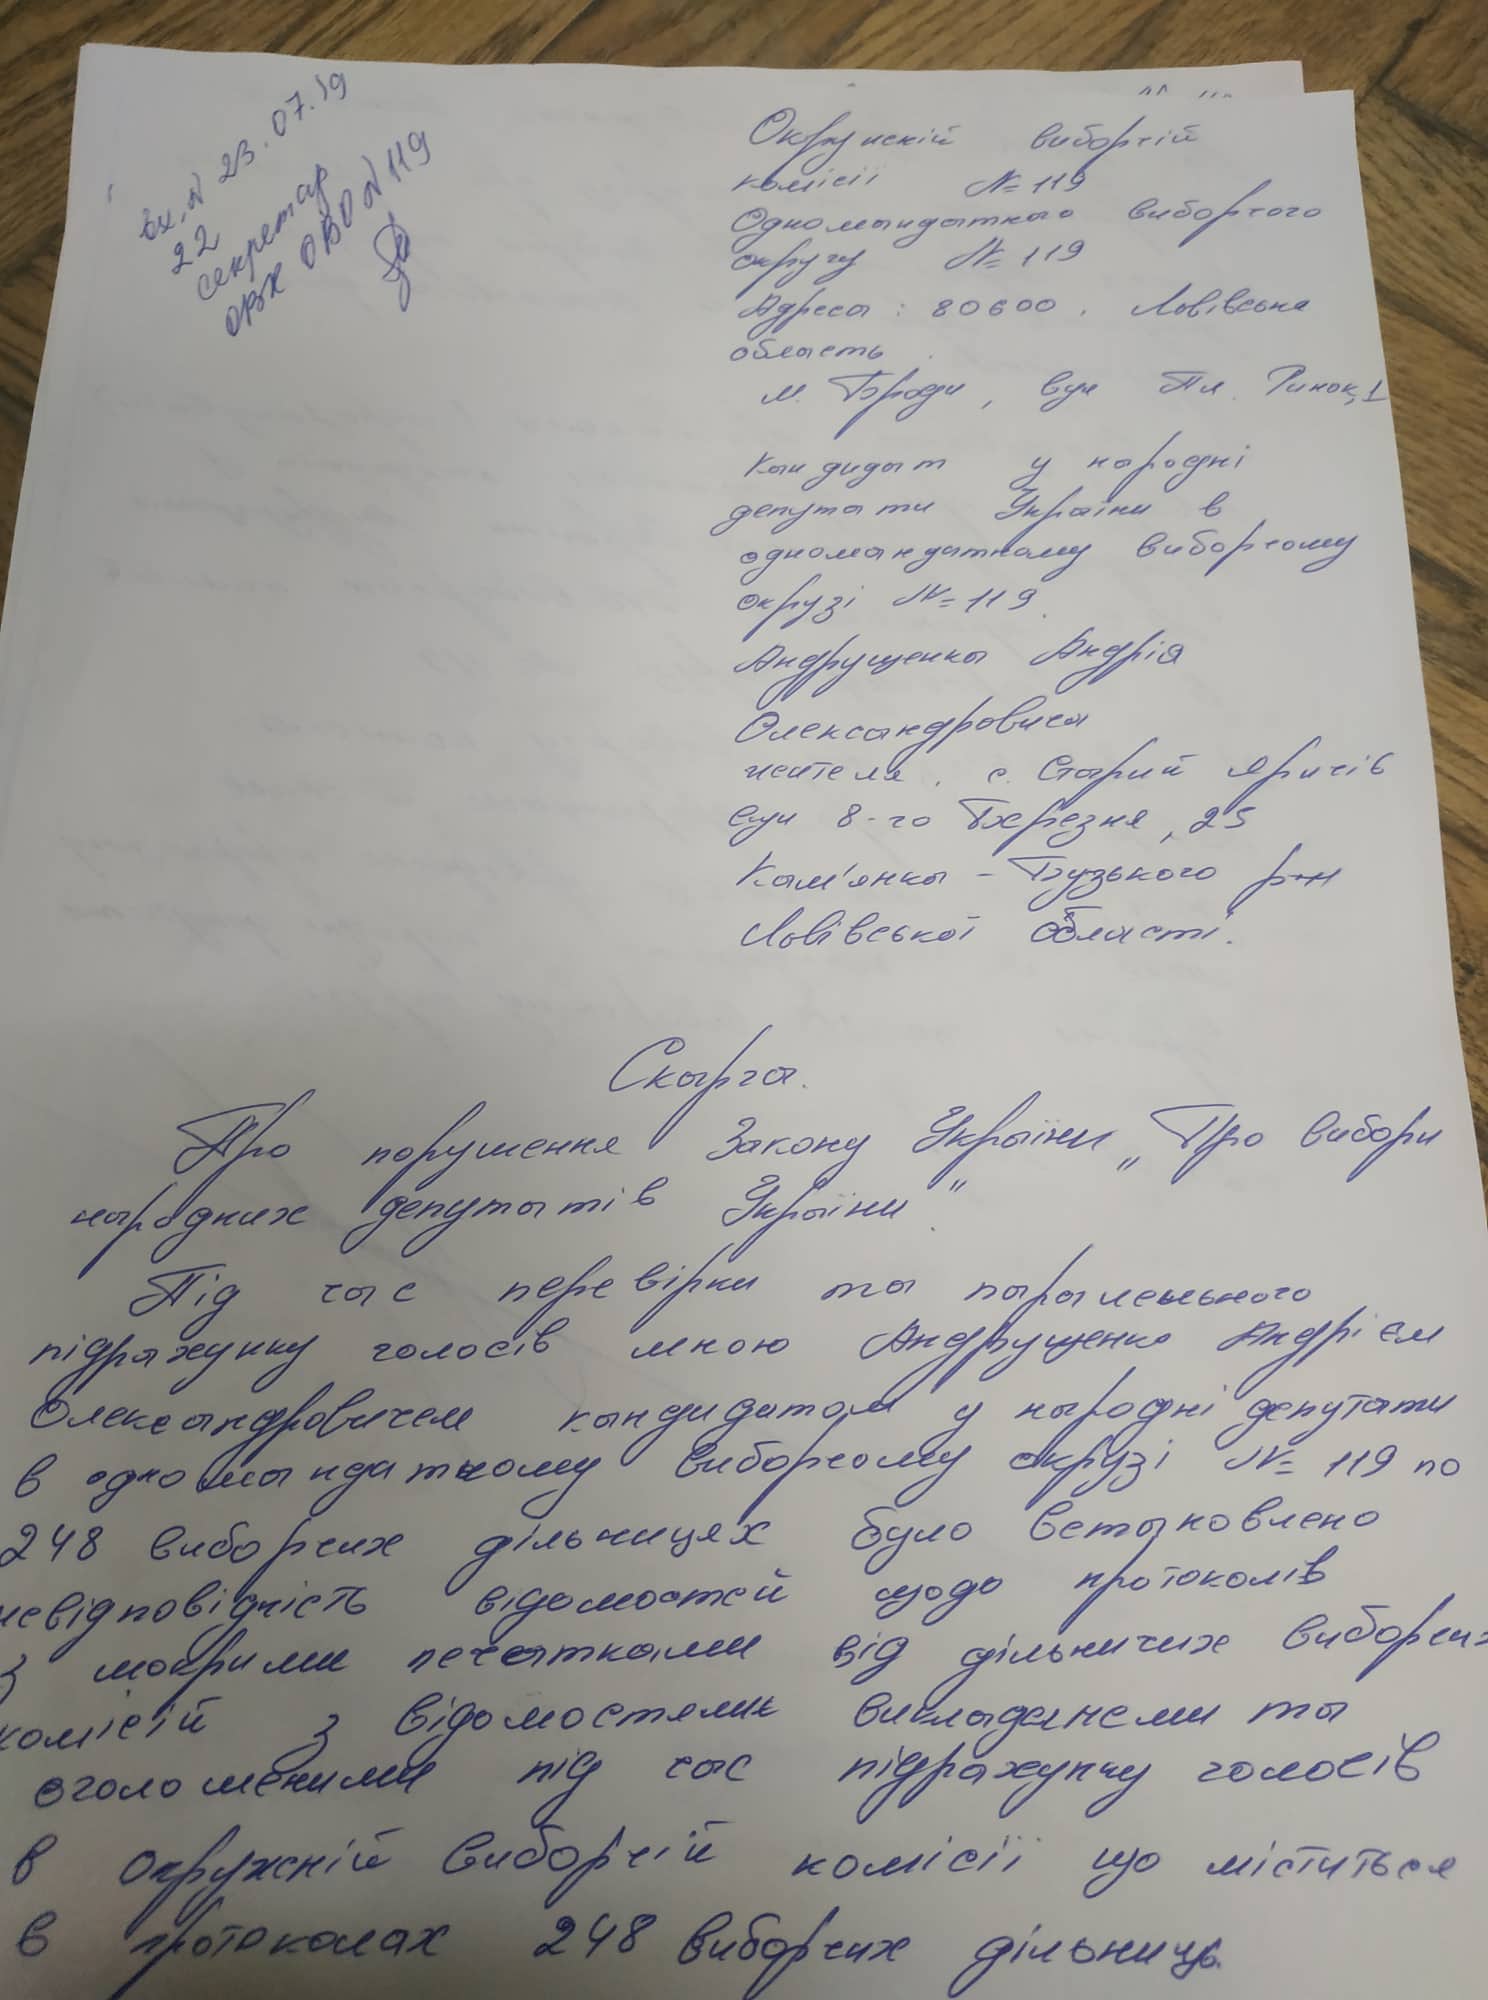 вх. № 23.07.19
22
секретар
ОВК ОВО № 119
Окружній виборчій
комісії № 119
Одномандатного виборчого
округу № 119
Адреса: 80600, Львівська
область
м. Броди, вул Пл. Ринок, 1
Кандидат у народні
депутати України в
одномандатному виборчому
окрузі № 119
Андрущенка Андрія
Олександровича
жителя. с. Старий Яричів
вул 8-го Березня, 25
Кам'янка-Бузького р-н
Львівської області.
Скарга.
Про порушення Закону України „Про вибори
народних депутатів України."
Під час перевірки та паралельного
підрахунку голосів мною Андрущенко Андрієм
Олександровичем кандидатом у народні депутати
в одномандатному виборчому окрузі № 119 по
248 виборчих дільницях було встановлено
невідповідність відомостей щодо протоколів
з мокрими печатками від дільничих виборчих
комісій з відомостями викладенеми та
оголошеними під час підрахунку голосів
в окружній виборчій комісії що міститься
в протоколах 248 виборчих дільниць.